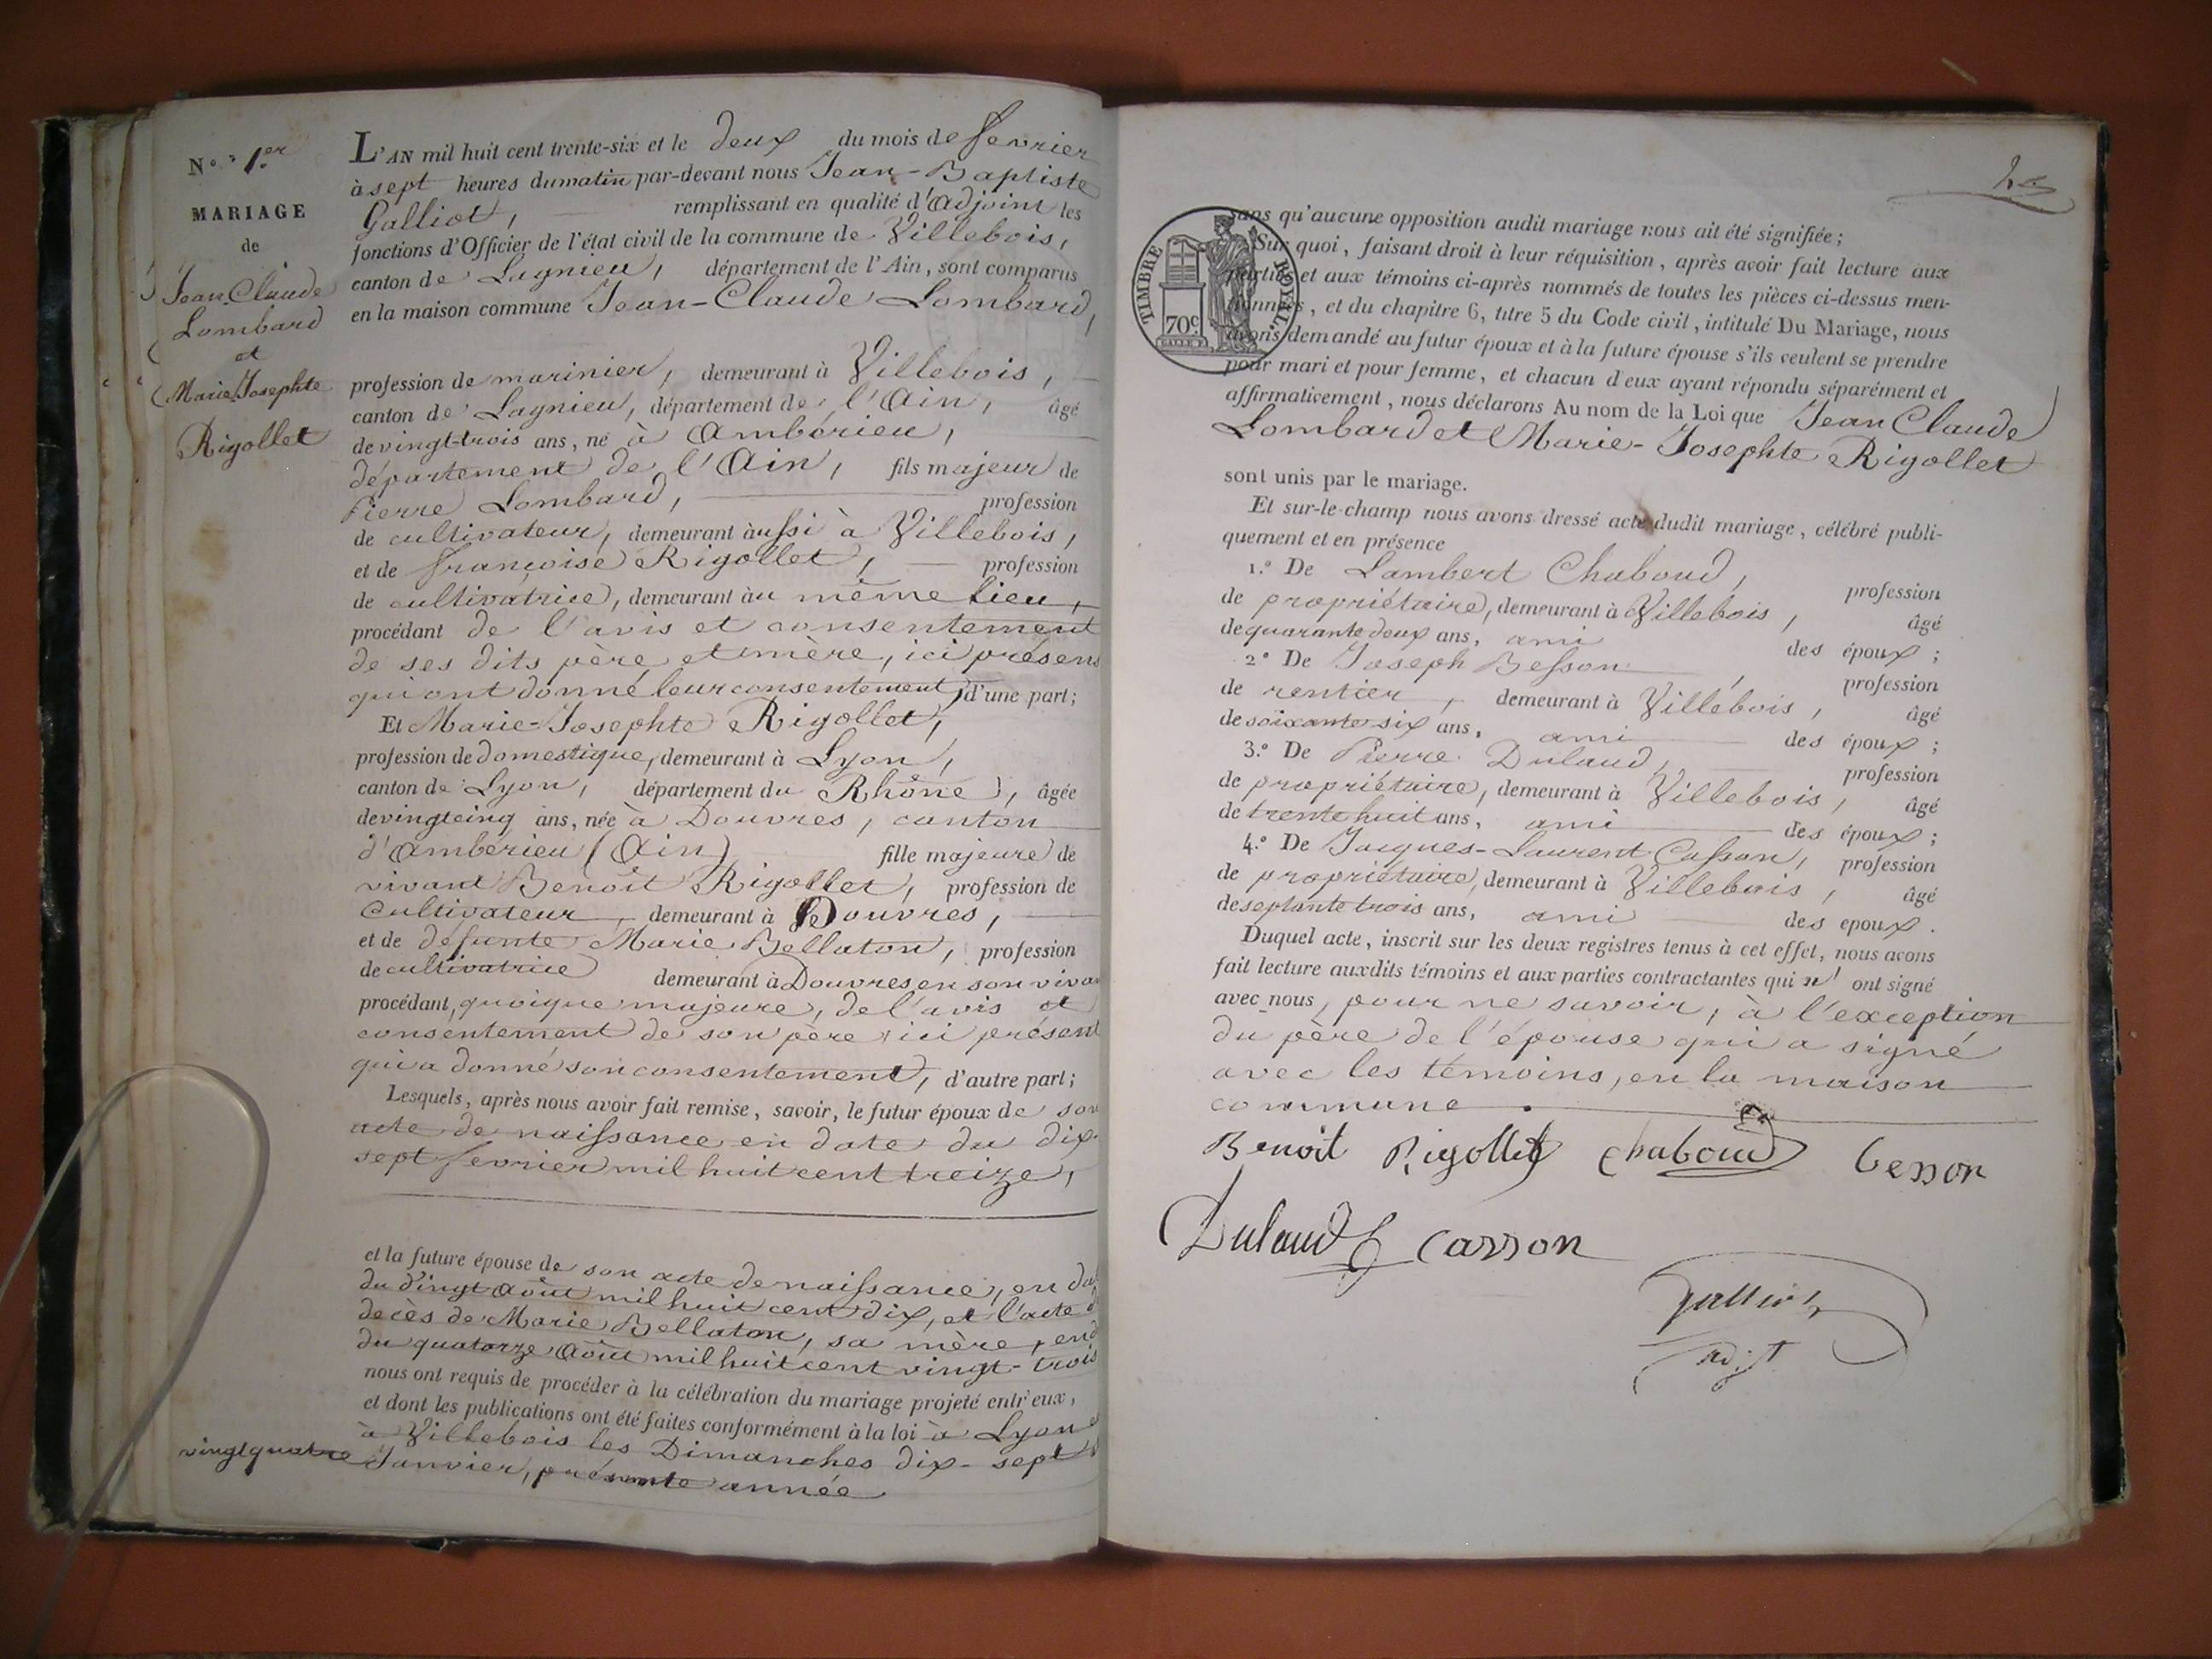 N.º 1.er
MARIAGE
de
Jean Claude
Lombard
et
Marie Josephte
Rigollet
L'AN mil huit cent trente-six et le deux du mois de fevrier
à sept heures du matin par-devant nous Jean-Baptiste
Galliot, remplissant en qualité d'Adjoint les
fonctions d'Officier de l'état civil de la commune de Villebois,
canton de Lagnieu, département de l'Ain, sont comparus
en la maison commune Jean-Claude Lombard,
profession de marinier, demeurant à Villebois,
canton de Lagnieu, département de l'Ain, âgé
de vingt-trois ans, né à Ambérieu,
département de l'Ain, fils majeur de
Pierre Lombard, profession
de cultivateur, demeurant aussi à Villebois,
et de françoise Rigollet, profession
de cultivatrice, demeurant au même lieu,
procédant de l'avis et consentement
de ses dits père et mère, ici présens
qui ont donné leur consentement, d'une part;
Et Marie-Josephte Rigollet,
profession de domestique, demeurant à Lyon,
canton de Lyon, département du Rhône, âgée
de vingt cinq ans, née à Douvres, canton
d'Ambérieu (Ain) fille majeure de
vivant Benoît Rigollet, profession de
Cultivateur, demeurant à Douvres,
et de défunte Marie Bellaton, profession
de cultivatrice demeurant à Douvres en son vivan
procédant, quoique majeure, de l'avis et
consentement de son père, ici présent
qui a donné son consentement, d'autre part;
Lesquels, après nous avoir fait remise, savoir, le futur époux de son
acte de naissance en date du dix-
sept fevrier mil huit cent treize,
et la future épouse de son acte de naissance, en da
du vingt Août mil huit cent dix, et l'acte d
decès de Marie Bellaton, sa mère, en d
du quatorze Août mil huit cent vingt-trois
nous ont requis de procéder à la célébration du mariage projeté entr'eux,
et dont les publications ont été faites conformément à la loi à Lyon et
à Villebois les Dimanches dix-sept
vingt quatre Janvier, présente année
sans qu'aucune opposition audit mariage nous ait été signifiée;
Sur quoi, faisant droit à leur réquisition, après avoir fait lecture aux
parties et aux témoins ci-après nommés de toutes les pièces ci-dessus men-
tionnées, et du chapitre 6, titre 5 du Code civil, intitulé Du Mariage, nous
avons demandé au futur époux et à la future épouse s'ils veulent se prendre
pour mari et pour femme, et chacun d'eux ayant répondu séparément et
affirmativement, nous déclarons Au nom de la Loi que Jean Claude
Lombard et Marie-Josephte Rigollet
TIMBRE ROYAL.
70c
sont unis par le mariage.
Et sur-le-champ nous avons dressé acte dudit mariage, célébré publi-
quement et en présence
1.º De Lambert Chaboud, profession
de propriétaire, demeurant à Villebois, âgé
de quarante deux ans, ami des époux;
2º De Joseph Besson, profession
de rentier, demeurant à Villebois, âgé
de soixante six ans, ami des époux;
3.º De Pierre Dulaud, profession
de propriétaire, demeurant à Villebois, âgé
de trente huit ans, ami des époux;
4.º De Jacques-Laurent Casson, profession
de propriétaire, demeurant à Villebois, âgé
de septante trois ans, ami des epoux.
Duquel acte, inscrit sur les deux registres tenus à cet effet, nous avons
fait lecture auxdits témoins et aux parties contractantes qui n' ont signé
avec nous, pour ne savoir, à l'exception
du père de l'épouse qui a signé
avec les témoins, en la maison
commune.
Benoit Rigollet Chaboud besson
Dulaud Casson
Galliot
adjt